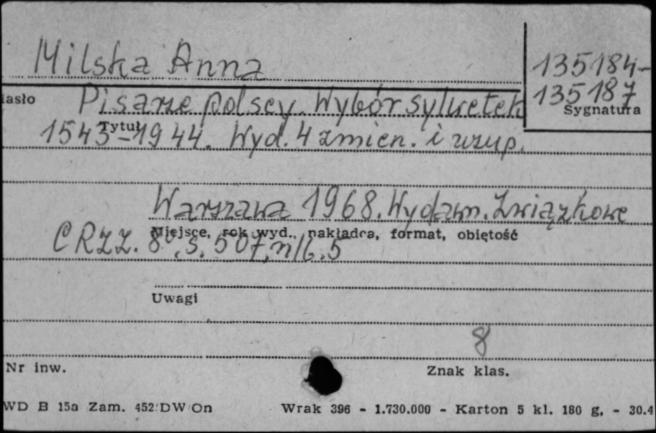 Milska Anna
135184-
135187
Sygnatura
iasło
Pisarze polscy. Wybór sylwetek
Tytuł
1543-1944. Wyd. 4 zmien. i uzup.
Warszawa 1968. Wydawn. Związkowe
Miejsce, rok wyd., nakładca, format, objętość
CRZZ. 8°, s. 507, nlb. 5
Uwagi
8
Nr inw.
Znak klas.
WD B 15a Zam. 452/DW/On
Wrak 396 - 1.730.000 - Karton 5 kl. 180 g. - 30.4